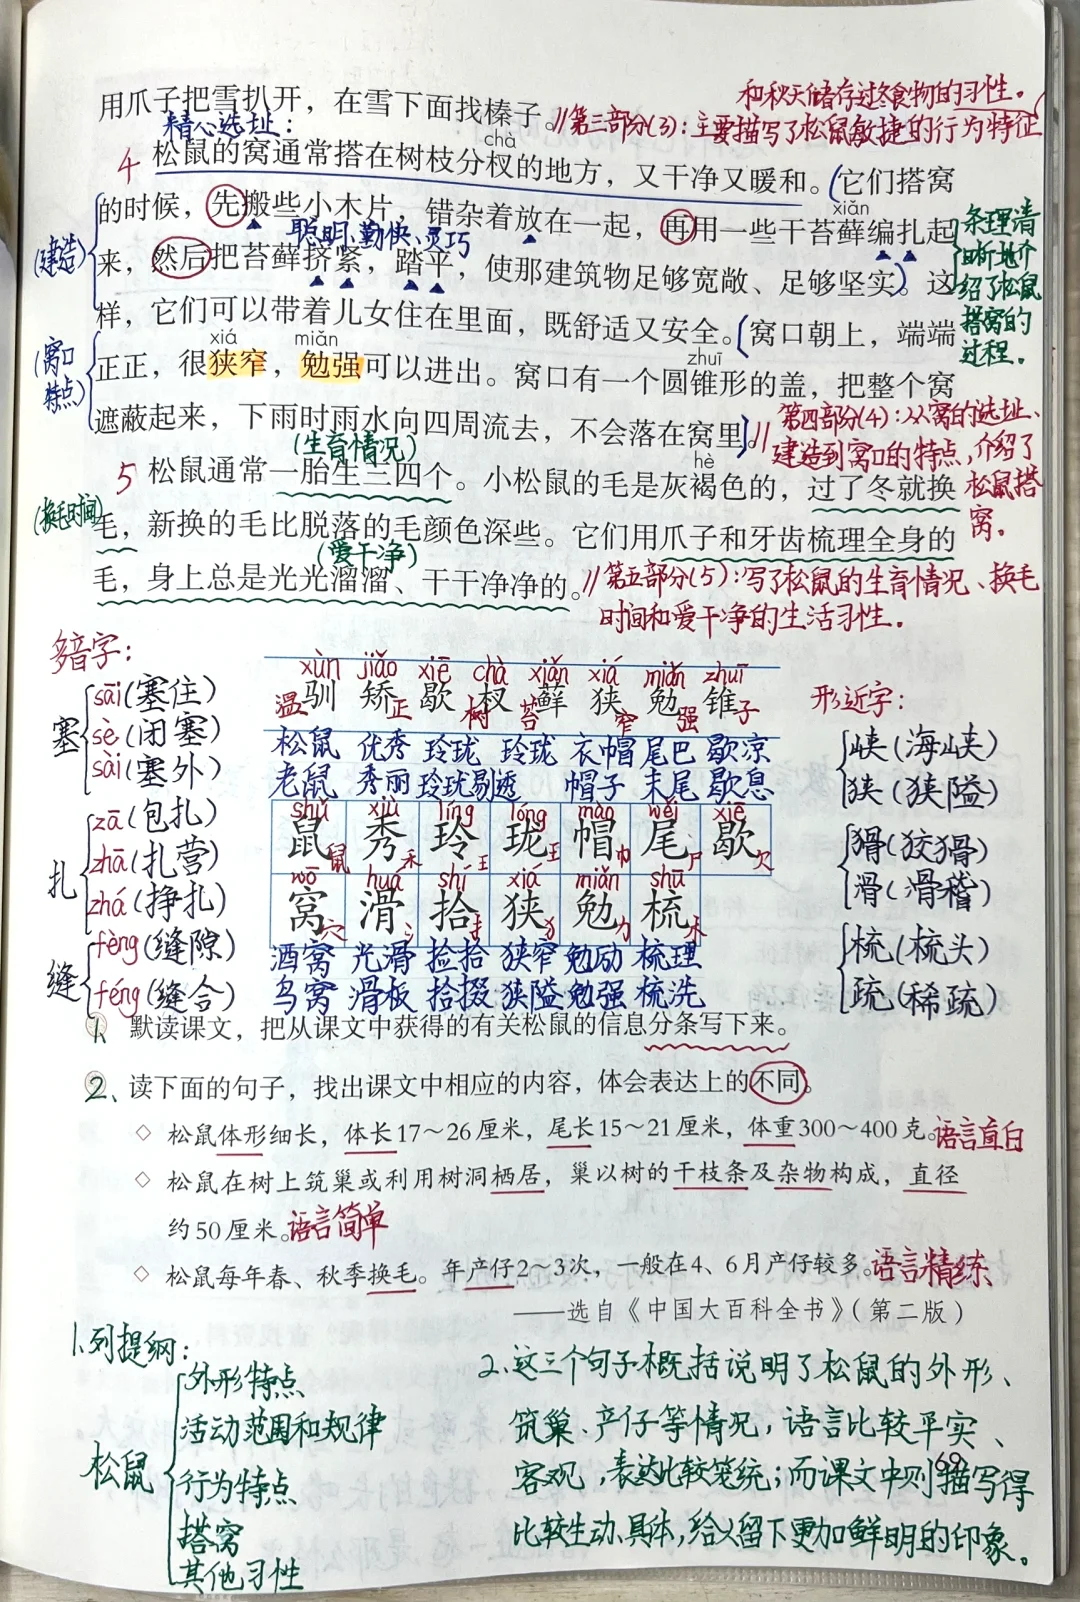 和秋天储存过冬食物的习性。
用爪子把雪扒开，在雪下面找榛子。//第三部分(3)：主要描写了松鼠敏捷的行为特征
精心选址：
chà
4 松鼠的窝通常搭在树枝分杈的地方，又干净又暖和。(它们搭窝
xiǎn
的时候，先搬些小木片，错杂着放在一起，再用一些干苔藓编扎起
聪明、勤快、灵巧
(建造)
来，然后把苔藓挤紧，踏平，使那建筑物足够宽敞、足够坚实)。这
条理清
晰地介
绍了松鼠
搭窝的
过程。
样，它们可以带着儿女住在里面，既舒适又安全。(窝口朝上，端端
xiá miǎn zhuī
(窝口
特点)
正正，很狭窄，勉强可以进出。窝口有一个圆锥形的盖，把整个窝
遮蔽起来，下雨时雨水向四周流去，不会落在窝里)。//
第四部分(4)：从窝的选址、
建造到窝口的特点，介绍了
松鼠搭
窝。
(生育情况)
hè
5 松鼠通常一胎生三四个。小松鼠的毛是灰褐色的，过了冬就换
(换毛时间)
毛，新换的毛比脱落的毛颜色深些。它们用爪子和牙齿梳理全身的
(爱干净)
毛，身上总是光光溜溜、干干净净的。//第五部分(5)：写了松鼠的生育情况、换毛
时间和爱干净的生活习性。
多音字：
塞
sāi(塞住)
sè(闭塞)
sài(塞外)
扎
zā(包扎)
zhā(扎营)
zhá(挣扎)
缝
fèng(缝隙)
féng(缝合)
xùn jiǎo xiē chà xiǎn xiá miǎn zhuī
温驯 矫正 歇 树杈 苔藓 狭窄 勉强 锥子
松鼠 优秀 玲珑 玲珑 衣帽 尾巴 歇凉
老鼠 秀丽 玲珑剔透 帽子 末尾 歇息
shǔ xiù líng lóng mào wěi xiē
鼠鼠 秀禾 玲王 珑王 帽巾 尾尸 歇欠
wō huá shí xiá miǎn shū
窝穴 滑氵 拾扌 狭犭 勉力 梳木
酒窝 光滑 捡拾 狭窄 勉励 梳理
鸟窝 滑板 拾掇 狭隘 勉强 梳洗
形近字：
峡(海峡)
狭(狭隘)
猾(狡猾)
滑(滑稽)
梳(梳头)
疏(稀疏)
1、默读课文，把从课文中获得的有关松鼠的信息分条写下来。
2、读下面的句子，找出课文中相应的内容，体会表达上的不同。
◇ 松鼠体形细长，体长17～26厘米，尾长15～21厘米，体重300～400克。语言直白
◇ 松鼠在树上筑巢或利用树洞栖居，巢以树的干枝条及杂物构成，直径
约50厘米。语言简单
◇ 松鼠每年春、秋季换毛。年产仔2～3次，一般在4、6月产仔较多。语言精练
——选自《中国大百科全书》（第二版）
1、列提纲：
松鼠
外形特点
活动范围和规律
行为特点
搭窝
其他习性
2、这三个句子概括说明了松鼠的外形、
筑巢、产仔等情况，语言比较平实、
客观，表达比较笼统；而课文中则描写得
比较生动、具体，给人留下更加鲜明的印象。
69